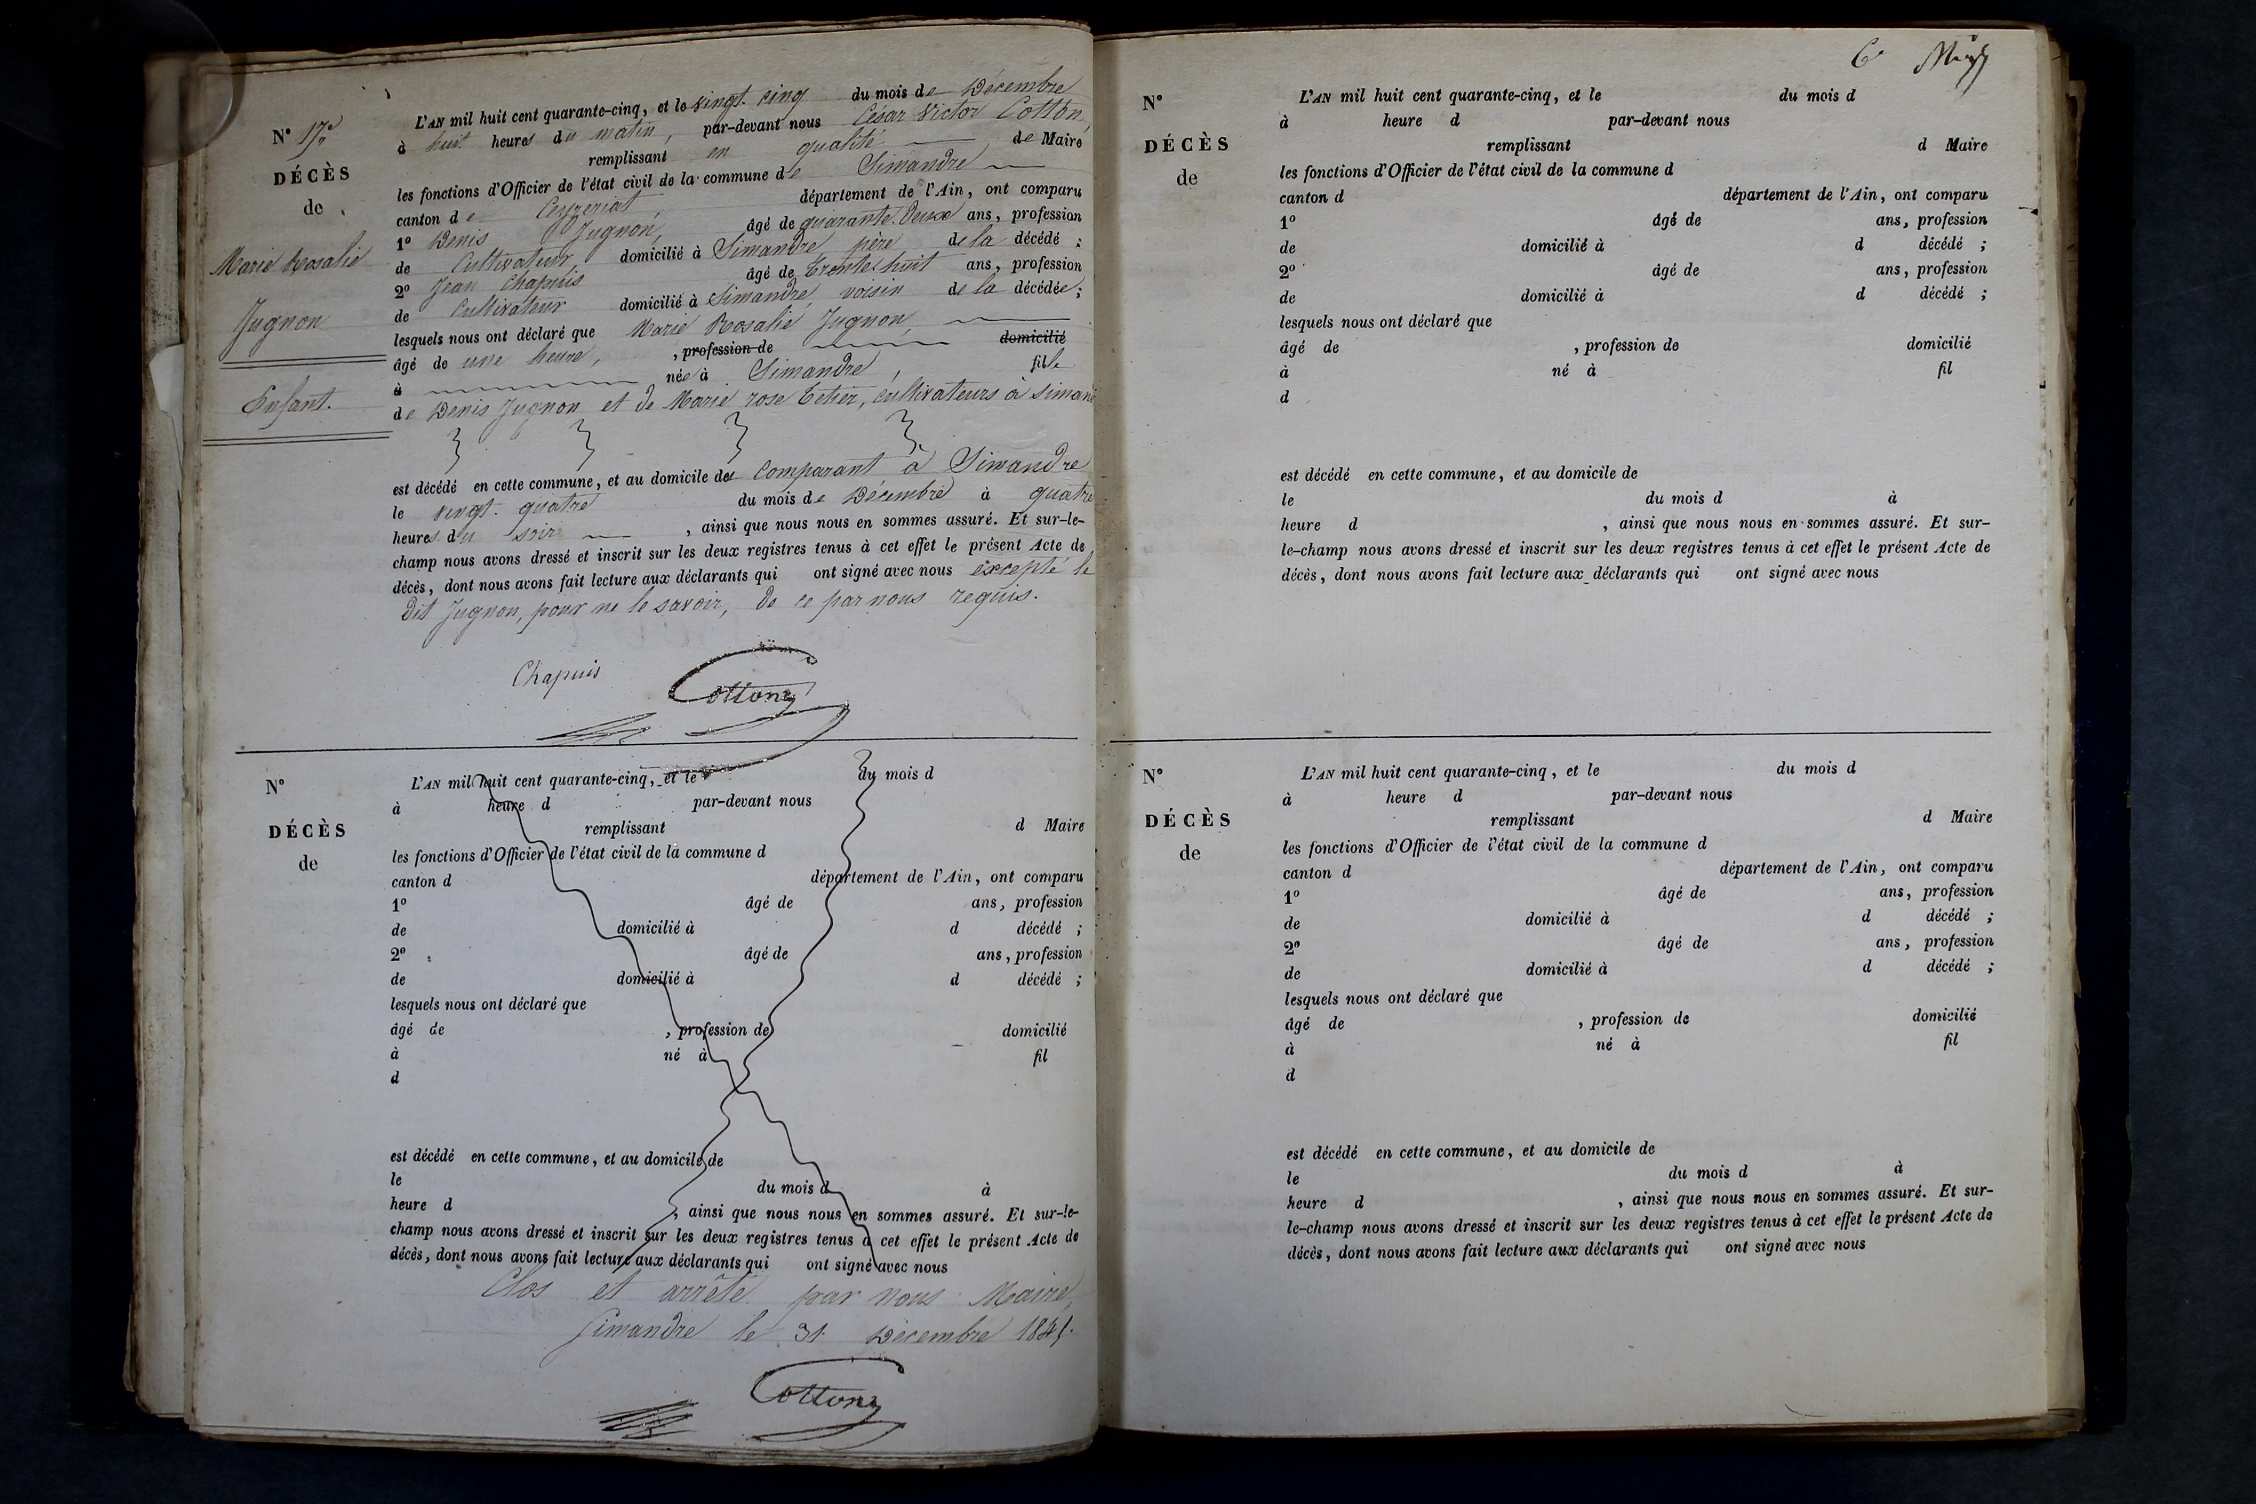 N° 17e
DÉCÈS
de
Marie Rosalie
Jugnon
Enfant.
L'AN mil huit cent quarante-cinq, et le vingt cinq du mois de Décembre
à huit heures du matin, par-devant nous César Victor Cotton,
remplissant en qualité de Maire
les fonctions d'Officier de l'état civil de la commune de Simandre
canton de Ceyzeriat, département de l'Ain, ont comparu
1° Denis Jugnon, âgé de quarante deux ans, profession
de Cultivateur domicilié à Simandre père de la décédé ;
2° Jean Chapuis âgé de trente huit ans, profession
de Cultivateur domicilié à Simandre, voisin de la décédée ;
lesquels nous ont déclaré que Marie Rosalie Jugnon,
âgé de une heure, , profession de domicilié
à née à Simandre, fille
de Denis Jugnon et de Marie rose Tetier, cultivateurs à simand
est décédé en cette commune, et au domicile du comparant à Simandre
le vingt-quatre du mois de Décembre à quatre
heures du soir , ainsi que nous nous en sommes assuré. Et sur-le-
champ nous avons dressé et inscrit sur les deux registres tenus à cet effet le présent Acte de
décès, dont nous avons fait lecture aux déclarants qui ont signé avec nous excepté le
dit Jugnon, pour ne le savoir, de ce par nous requis.
Chapuis Cotton
N°
DÉCÈS
de
L'AN mil huit cent quarante-cinq, et le du mois d
à heure d par-devant nous
remplissant d Maire
les fonctions d'Officier de l'état civil de la commune d
canton d département de l'Ain, ont comparu
1° âgé de ans, profession
de domicilié à d décédé ;
2° âgé de ans, profession
de domicilié à d décédé ;
lesquels nous ont déclaré que
âgé de , profession de domicilié
à né à fil
d
est décédé en cette commune, et au domicile de
le du mois d à
heure d , ainsi que nous nous en sommes assuré. Et sur-le-
champ nous avons dressé et inscrit sur les deux registres tenus à cet effet le présent Acte de
décès, dont nous avons fait lecture aux déclarants qui ont signé avec nous
Clos et arrêté par nous Maire,
Simandre le 31 Décembre 1845.
Cotton
N°
DÉCÈS
de
L'AN mil huit cent quarante-cinq, et le du mois d
à heure d par-devant nous
remplissant d Maire
les fonctions d'Officier de l'état civil de la commune d
canton d département de l'Ain, ont comparu
1° âgé de ans, profession
de domicilié à d décédé ;
2° âgé de ans, profession
de domicilié à d décédé ;
lesquels nous ont déclaré que
âgé de , profession de domicilié
à né à fil
d
est décédé en cette commune, et au domicile de
le du mois d à
heure d , ainsi que nous nous en sommes assuré. Et sur-
le-champ nous avons dressé et inscrit sur les deux registres tenus à cet effet le présent Acte de
décès, dont nous avons fait lecture aux déclarants qui ont signé avec nous
N°
DÉCÈS
de
L'AN mil huit cent quarante-cinq, et le du mois d
à heure d par-devant nous
remplissant d Maire
les fonctions d'Officier de l'état civil de la commune d
canton d département de l'Ain, ont comparu
1° âgé de ans, profession
de domicilié à d décédé ;
2° âgé de ans, profession
de domicilié à d décédé ;
lesquels nous ont déclaré que
âgé de , profession de domicilié
à né à fil
d
est décédé en cette commune, et au domicile de
le du mois d à
heure d , ainsi que nous nous en sommes assuré. Et sur-
le-champ nous avons dressé et inscrit sur les deux registres tenus à cet effet le présent Acte de
décès, dont nous avons fait lecture aux déclarants qui ont signé avec nous